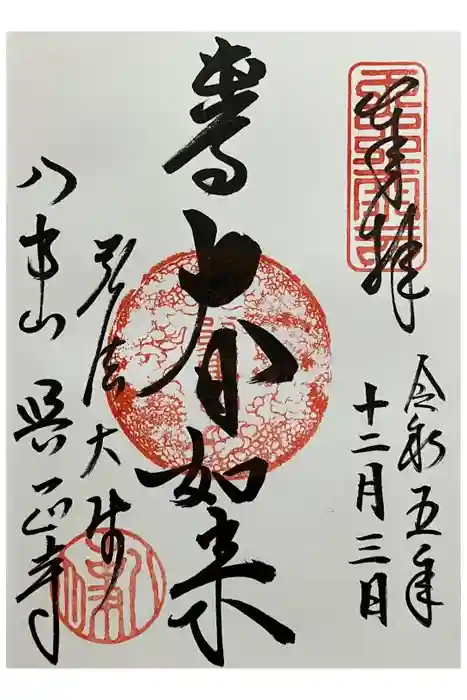 奉拝
令和五年
十二月三日
如来
弘法大師
八事山 興正寺